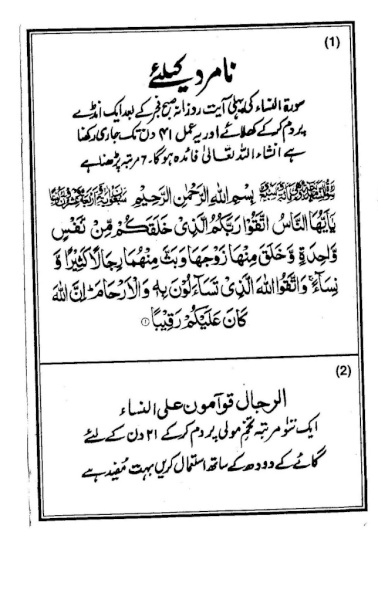 (1)
نامردی کیلئے
سورۃ النساء کی پہلی آیت روزانہ صبح فجر کے بعد ایک انڈے
پر دم کر کے کھلائے اور یہ عمل ۴۱ دن تک جاری رکھنا
ہے انشاء اللہ تعالیٰ فائدہ ہوگا۔ ۷ مرتبہ پڑھنا ہے
بِسْمِ اللهِ الرَّحْمٰنِ الرَّحِيْمِ
يٰۤاَيُّهَا النَّاسُ اتَّقُوْا رَبَّكُمُ الَّذِىْ خَلَقَكُمْ مِّنْ نَّفْسٍ
وَّاحِدَةٍ وَّخَلَقَ مِنْهَا زَوْجَهَا وَبَثَّ مِنْهُمَا رِجَالًا كَثِيْرًا وَّ
نِسَآءً ۚ وَاتَّقُوا اللهَ الَّذِىْ تَسَآءَلُوْنَ بِهٖ وَالْاَرْحَامَ ؕ اِنَّ اللهَ
كَانَ عَلَيْكُمْ رَقِيْبًا ①
(2)
الرجال قوآمون علی النساء
ایک سو مرتبہ تخم مولی پر دم کر کے ۲۱ دن کے لئے
گائے کے دودھ کے ساتھ استعمال کریں بہت مفید ہے